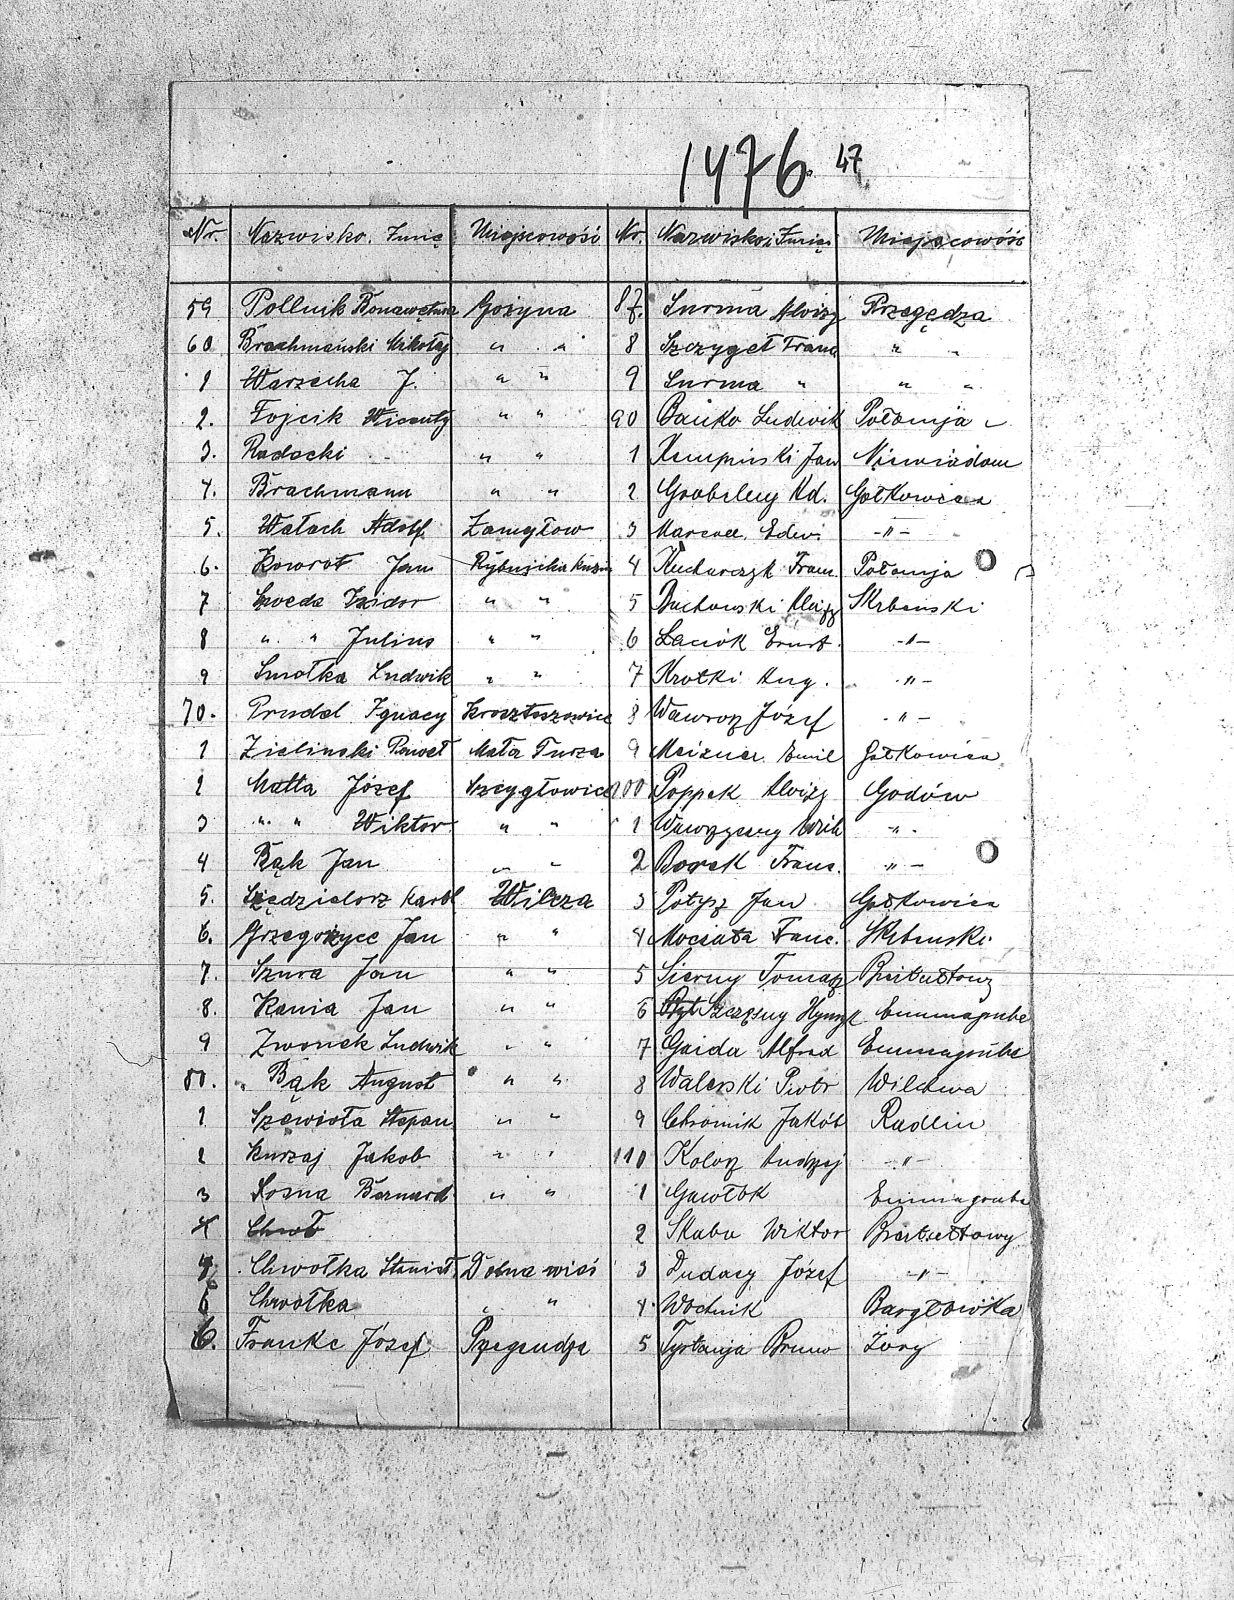 1476. 47
Nr. Nazwisko. Imię Miejscowość Nr. Nazwisko i Imię Miejscowość
59 Pollnik Bonawętura Gożyna 87. Surma Aloizy Przegędza
60 Brachmański Mikołaj " " 8 Szczygeł Franc " "
1 Warzecha J. " " 9 Surma " " "
2. Fojcik Wicenty " " 90 Bańko Ludwik Połomja
3. Radecki " " 1 Kempiński Jan Niewiadom
4. Brachmann " " 2 Ad. Gołkowice
5. Wałach Adolf Zamysłow 3 -"-
6. Kowrot Jan Rybnicka 4 Kucharczyk Franc. Połomja
7 Szweda Izidor " " 5 Buchowski Aloizy Skrbeński
8 " " Julius " " 6 Laciok Ernst. -"-
9 Smołka Ludwik " " 7 Krotki Aug. -"-
70. Prudel Ignacy Krosztoszowice 8 Wawrzy Józef -"-
1 Zieliński Paweł Mała Turza 9 Meisner Emil Gołkowice
2 Matta Józef Szczygłowice 100 Poppek Aloizy Godów
3 " " Wiktor " " 1 -"-
4 Bąk Jan " " 2 Borek Franc. -"-
5. Karol Wilcza 3 Potysz Jan Gołkowice
6. Grzegorzyce Jan " " 4 Mociała Franc. Skrbenski.
7. Sznra Jan " " 5 Sierny Tomasz Birtułtowy
8. Kania Jan " " 6 Szczęsny Henryk Emmagrube
9 Zwonek Ludwik " " 7 Gaida Alfred Emmagrube
80. Bąk August " " 8 Walerski Piotr Wilchwa
1 Szewioła Stepan " " 9 Chromik Jakób Radlin
2 Kurzaj Jakob " " 110 Kolorz Andrzej -"-
3 Sosna Bernard " " 1 Gawlok Emmagrube
4 Chwoł 2 Skaba Wiktor Birtułtowy
4. Chwołka Stanisł. Dolna wieś 3 Dudacy Józef -"-
5 Chwołka " " 4. Wodnik Bargłowka
6. Franke Józef Przegendza 5 Bruno Żory